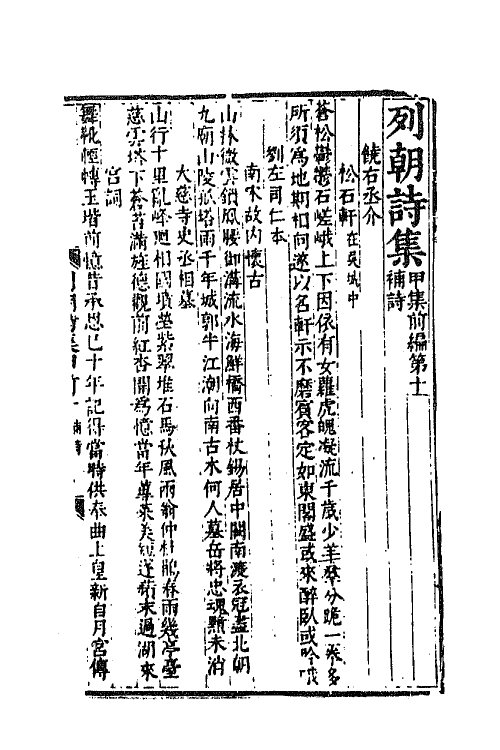 列朝詩集甲集前編第十一
補詩
饒右丞介
松石軒在吳城中
蒼松鬱鬱石嵯峨上下因依有女蘿虎魄凝流千歲少羊羣分跪一拳多
所須為地期相向遂以名軒示不磨賓客定如東閣盛或來醉臥或吟哦
劉左司仁本
南宋故內懷古
山林微雲鎖鳳樓御溝流水海鮮橋西番杖錫居中闕南渡衣冠盡北朝
九廟山陵孤塔雨千年城郭半江潮向南古木何人墓岳將忠魂黯未消
大慈寺史丞相墓
山行十里亂峰迴相國墳塋紫翠堆石馬秋風雨翁仲杜鵑春雨幾亭臺
慈雲塔下蒼苔滿旌德觀前紅杏開為憶當年蓴菜美短逢蒻末過湖來
宮詞
舞靴慵轉玉堦前憶昔承恩已十年記得當時供奉曲上皇新自月宮傳